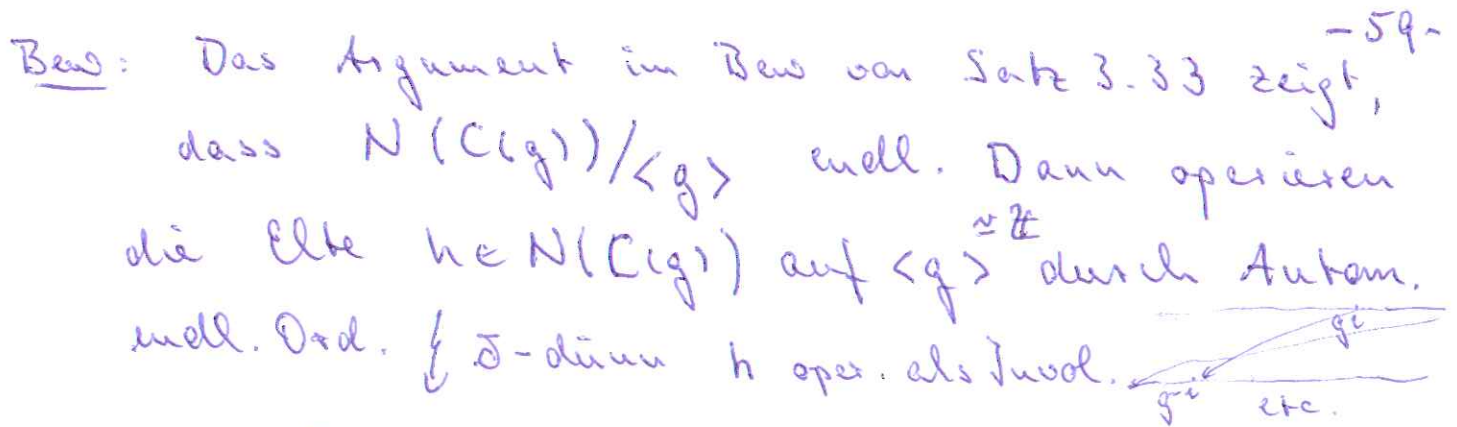 -59-
Bew: Das Argument im Bew von Satz 3.33 zeigt,
dass N(C(g))/<g> endl. Dann operieren
≃ ℤ
die Elte h∈N(C(g)) auf <g> durch Autom.
endl. Ord. ↯ δ-dünn h oper. als Invol.
gⁱ
g⁻ⁱ etc.